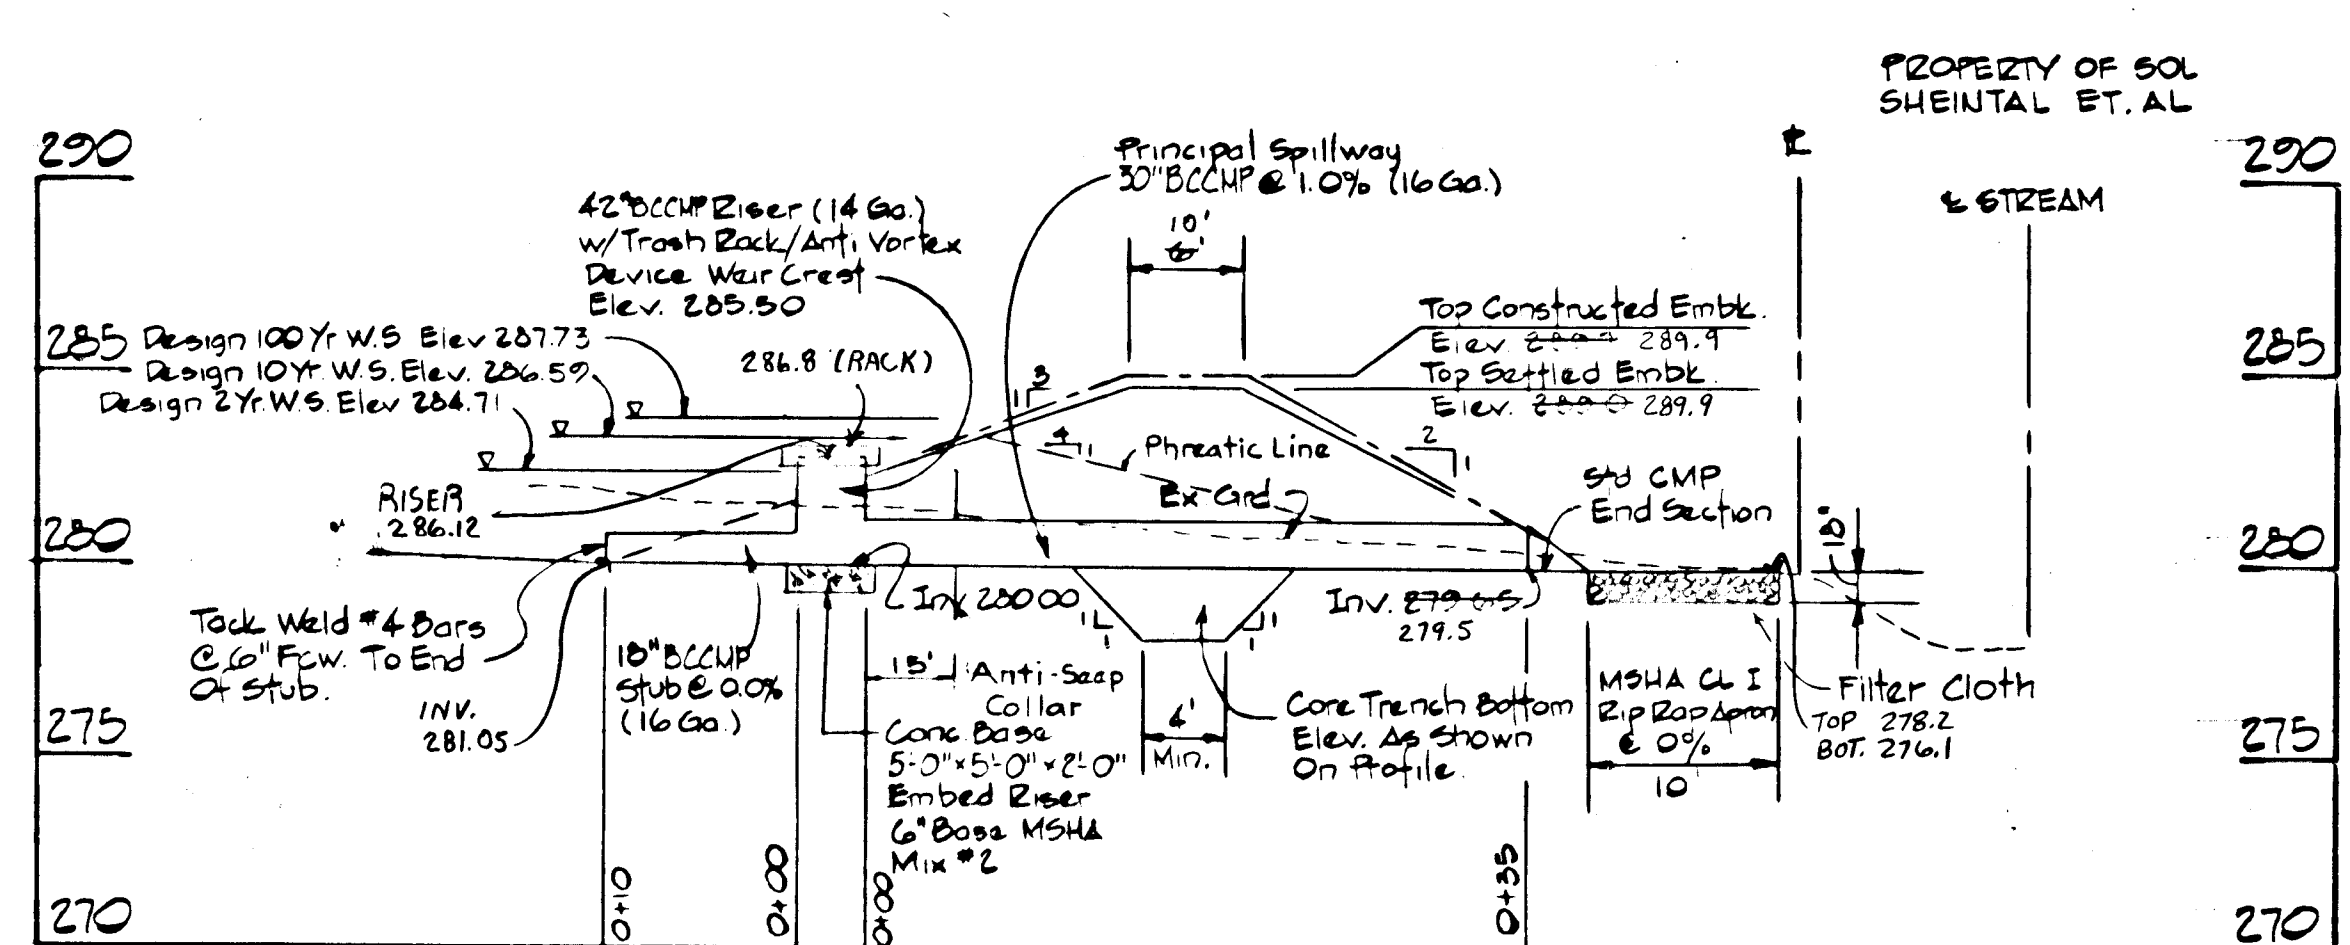 PROPERTY OF SOL
SHEINTAL ET. AL
290
290
℄ STREAM
Principal Spillway
30" BCCMP @ 1.0% (16 Ga.)
42" BCCMP Riser (14 Ga.)
w/Trash Rack/Anti Vortex
Device Weir Crest
Elev. 285.50
10'
6'
Top Constructed Embk.
Elev. 289.9
Top Settled Embk.
Elev. 289.0 289.9
285
285
Design 100 Yr W.S Elev 287.73
Design 10 Yr. W.S. Elev. 286.59
Design 2 Yr. W.S. Elev 284.71
286.8 (RACK)
3
1
4
1
2
1
Phreatic Line
Ex Grd
Std CMP
End Section
RISER
286.12
280
280
18"
Inv 280.00
Inv. 279.65
279.5
1
1
1
1
Tack Weld #4 Bars
@ 6" Fcw. To End
Of Stub.
INV.
281.05
18" BCCMP
Stub @ 0.0%
(16 Ga.)
15'
Anti-Seep
Collar
Conc. Base
5'-0" x 5'-0" x 2'-0"
Embed Riser
6" Base MSHA
Mix #2
4'
Min.
Core Trench Bottom
Elev. As Shown
On Profile.
MSHA CL I
Rip Rap Apron
@ 0%
10'
Filter Cloth
TOP 278.2
BOT. 276.1
275
275
270
270
0+10
0+00
0+00
0+35